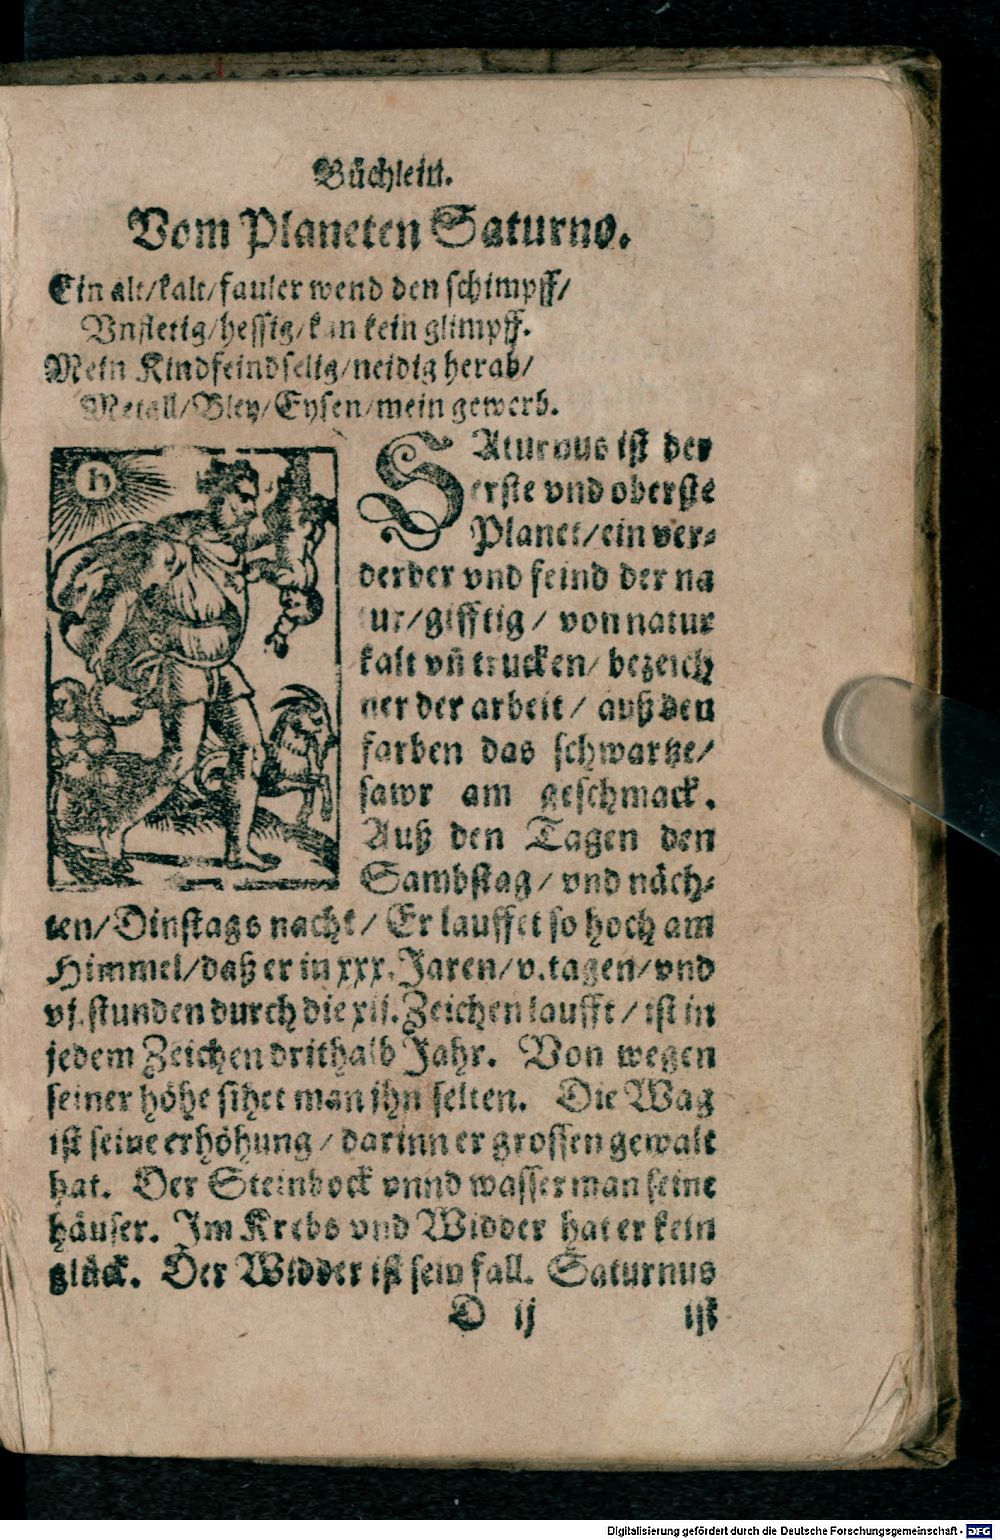 Büchlein.
Vom Planeten Saturno.
Ein alt/kalt/fauler wend den schimpff/
Vnfletig/hessig/kan kein glimpff.
Mein Kindfeindselig/neidig herab/
Metall/Bley/Eysen/mein gewerb.
SAturnus ist der
erste vnd oberste
Planet/ein ver-
derber vnd feind der na
tur/gifftig/ von natur
kalt vñ trucken/ bezeich
ner der arbeit/ auß den
farben das schwartze/
sawr am geschmack.
Auß den Tagen den
Sambstag/ vnd näch-
ten/Dinstags nacht/ Er lauffet so hoch am
Himmel/daß er in xxx. Jaren/v.tagen/vnd
vj.stunden durch die xij. Zeichen laufft/ ist in
jedem Zeichen drithalb Jahr. Von wegen
seiner höhe sihet man jhn selten. Die Wag
ist seine erhöhung/ darinn er grossen gewalt
hat. Der Steinbock vnnd wasserman seine
häuser. Im Krebs vnd Widder hat er kein
glück. Der Widder ist sein fall. Saturnus
D ij ist
Digitalisierung gefördert durch die Deutsche Forschungsgemeinschaft - DFG